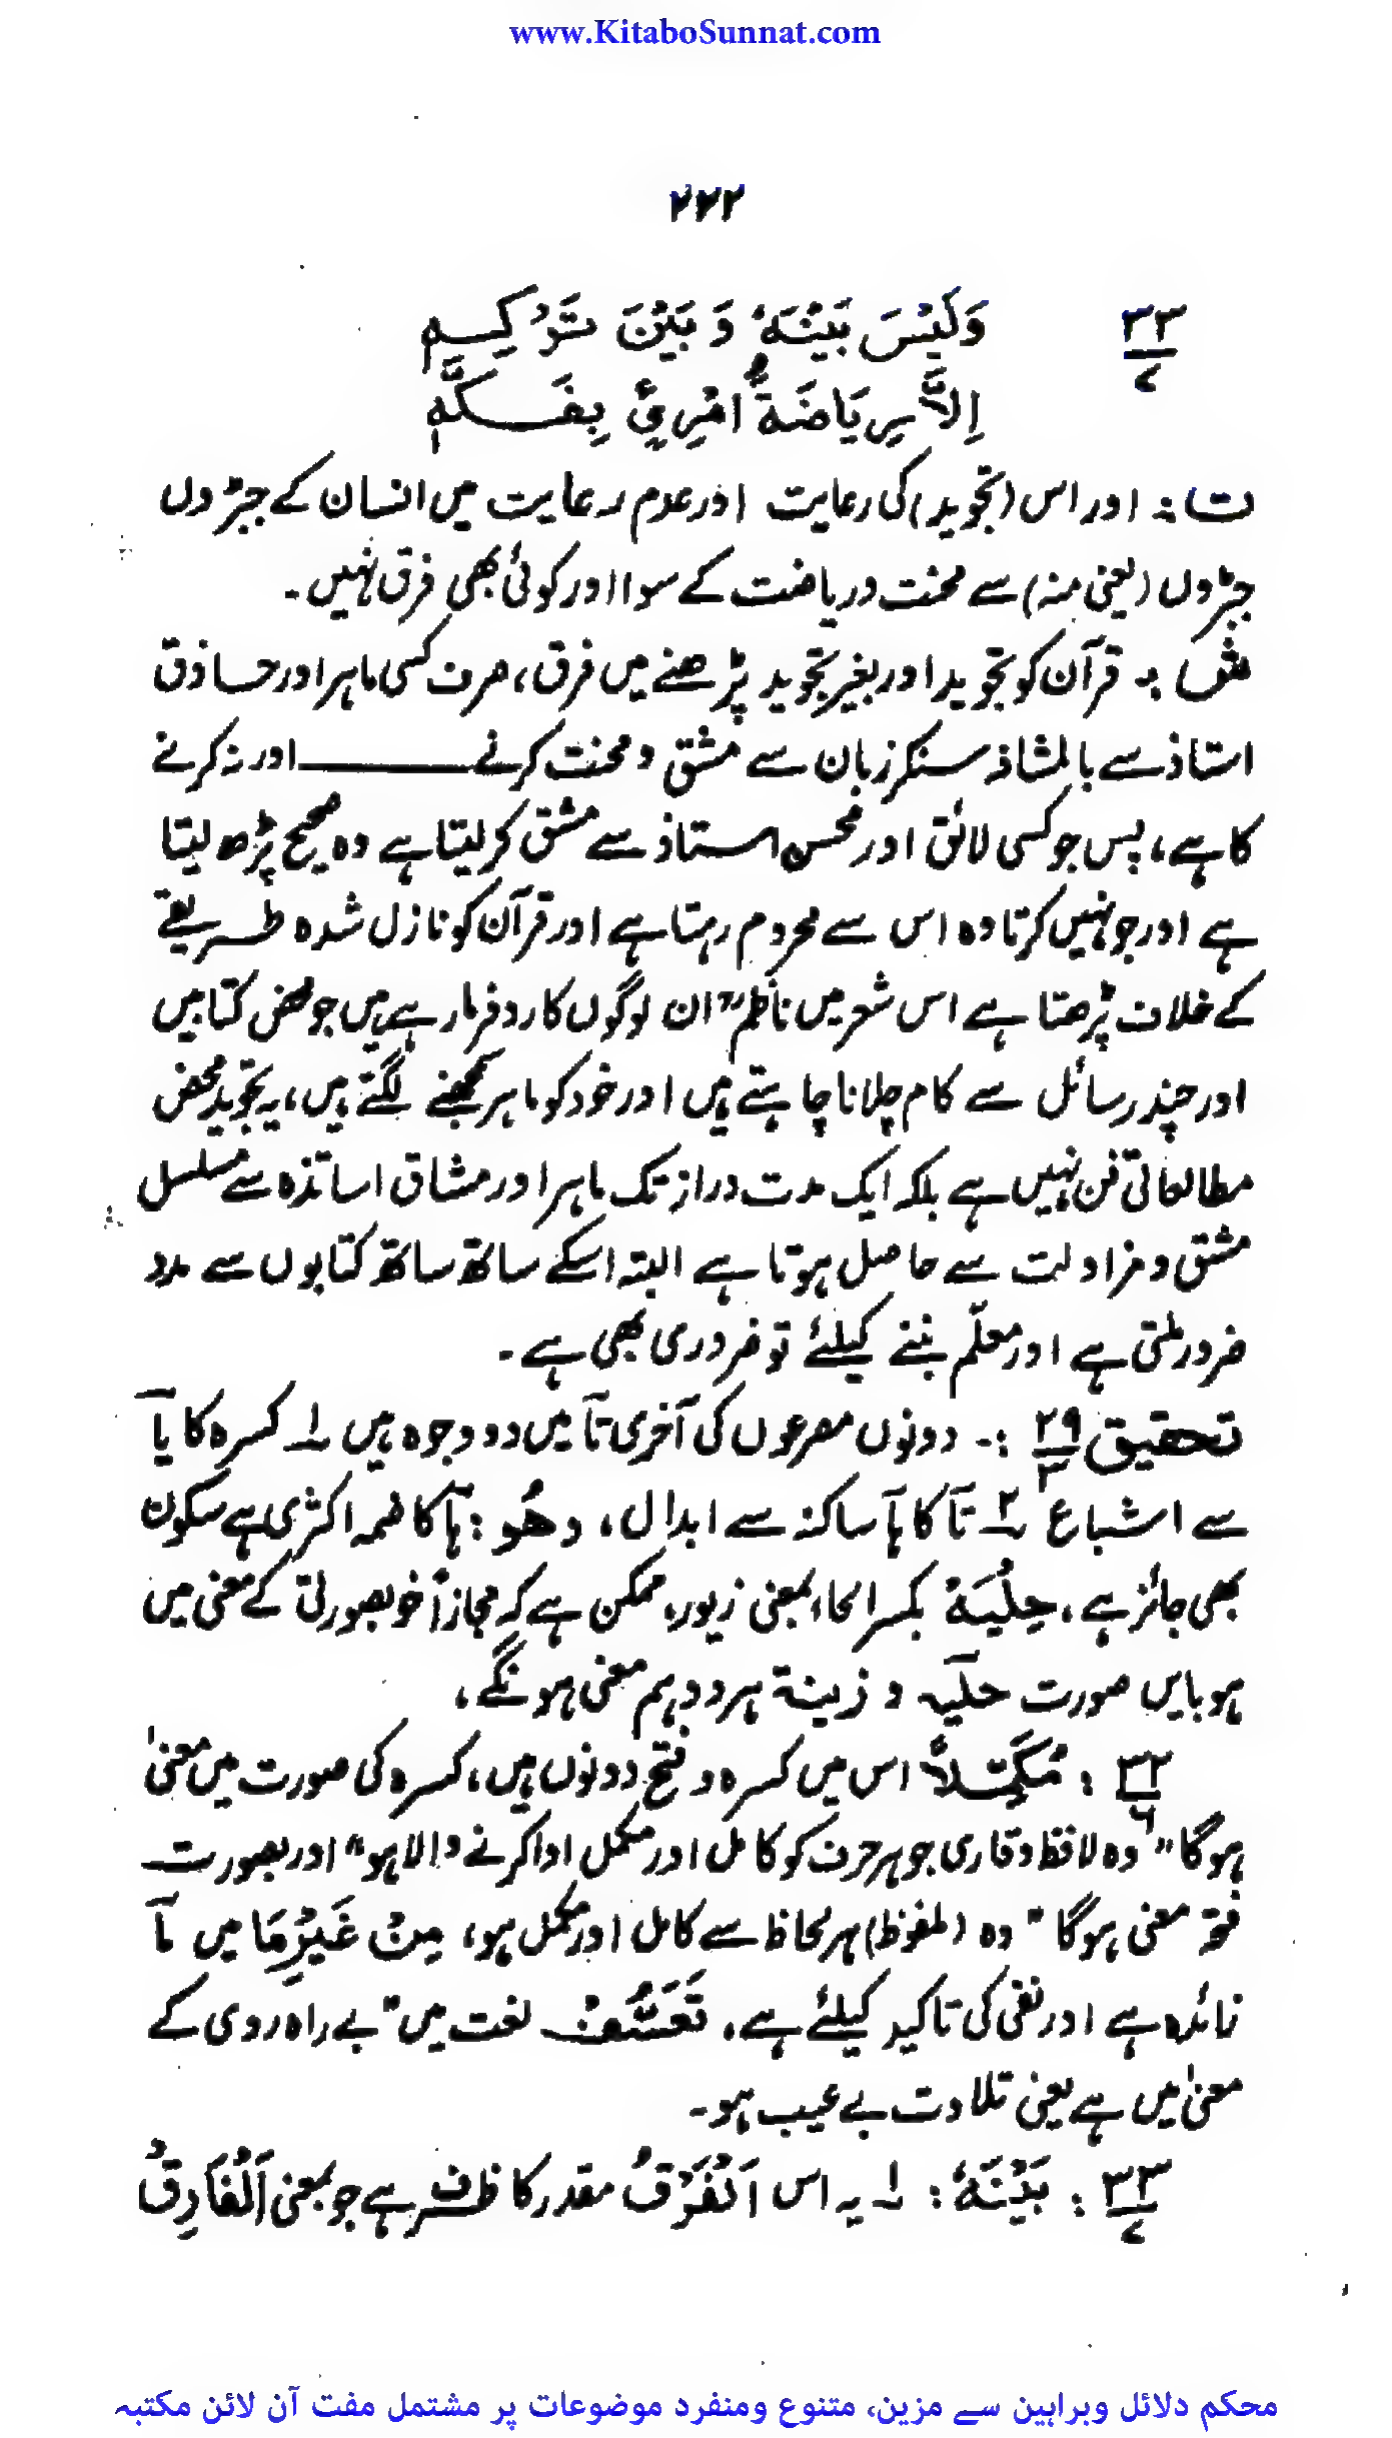 www.KitaboSunnat.com
۲۲۲
۳۳/۷ وَلَيْسَ بَيْنَهٗ وَبَيْنَ تَرْكِهٖ
اِلَّا رِيَاضَةُ امْرِئٍ بِفَكِّهٖ
ت: اور اس (تجوید) کی رعایت اور عدم رعایت میں انسان کے جبڑوں
جبڑوں (یعنی منہ) سے محنت و ریاضت کے سوا اور کوئی بھی فرق نہیں۔
ش: قرآن کو تجوید اور بغیر تجوید پڑھنے میں فرق، صرف کسی ماہر اور حاذق
استاذ سے بالمشافہ سنکر زبان سے مشق و محنت کرنے ـــــ اور نہ کرنے
کا ہے، پس جو کسی لائق اور محسن استاذ سے مشق کر لیتا ہے وہ صحیح پڑھ لیتا
ہے اور جو نہیں کرتا وہ اس سے محروم رہتا ہے اور قرآن کو نازل شدہ طریقے
کے خلاف پڑھتا ہے اس شعر میں ناظمؒ ان لوگوں کا رد فرما رہے ہیں جو محض کتابیں
اور چند رسائل سے کام چلانا چاہتے ہیں اور خود کو ماہر سمجھنے لگتے ہیں، یہ تجوید محض
مطالعاتی فن نہیں ہے بلکہ ایک مدت دراز تک ماہر اور مشاق اساتذہ سے مسلسل
مشق و مزاولت سے حاصل ہوتا ہے البتہ اسکے ساتھ ساتھ کتابوں سے مدد
ضرور ملتی ہے اور معلّم بننے کیلئے تو ضروری بھی ہے۔
تحقیق ۲۹/۳ :۔ دونوں مصرعوں کی آخری تآ میں دو وجوہ ہیں ۱؎ کسرہ کا یآ
سے اشباع ۲؎ تآ کا ہآ ساکنہ سے ابدال، وھُو: ہآ کا ضمہ اکثری ہے سکون
بھی جائز ہے، حِلْيَة بکسر الحاء بمعنی زیور، ممکن ہے کہ مجازاً خوبصورتی کے معنی میں
ہو بایں صورت حلیہ و زینة ہر دو ہم معنی ہونگے،
۳۲/۶ : مُكَمِّلًا اس میں کسرہ و فتح دونوں ہیں، کسرہ کی صورت میں معنیٰ
ہوگا "وہ لافظ و قاری جو ہر حرف کو کامل اور مکمل ادا کرنے والا ہو" اور بصورت
فتحہ معنی ہوگا "وہ (ملفوظ) ہر لحاظ سے کامل اور مکمل ہو، مِنْ غَيْرِ مَا میں مآ
زائدہ ہے اور نفی کی تاکید کیلئے ہے، تَعَسُّفْ لغت میں "بے راہ روی کے
معنیٰ میں ہے یعنی تلاوت بے عیب ہو۔
۳۳/۷ : بَيْنَهٗ : ۱؎ یہ اس اَلْفَرْقُ مقدر کا ظرف ہے جو بمعنی اَلْفَارِقُ
محکم دلائل وبراہین سے مزین، متنوع ومنفرد موضوعات پر مشتمل مفت آن لائن مکتبہ